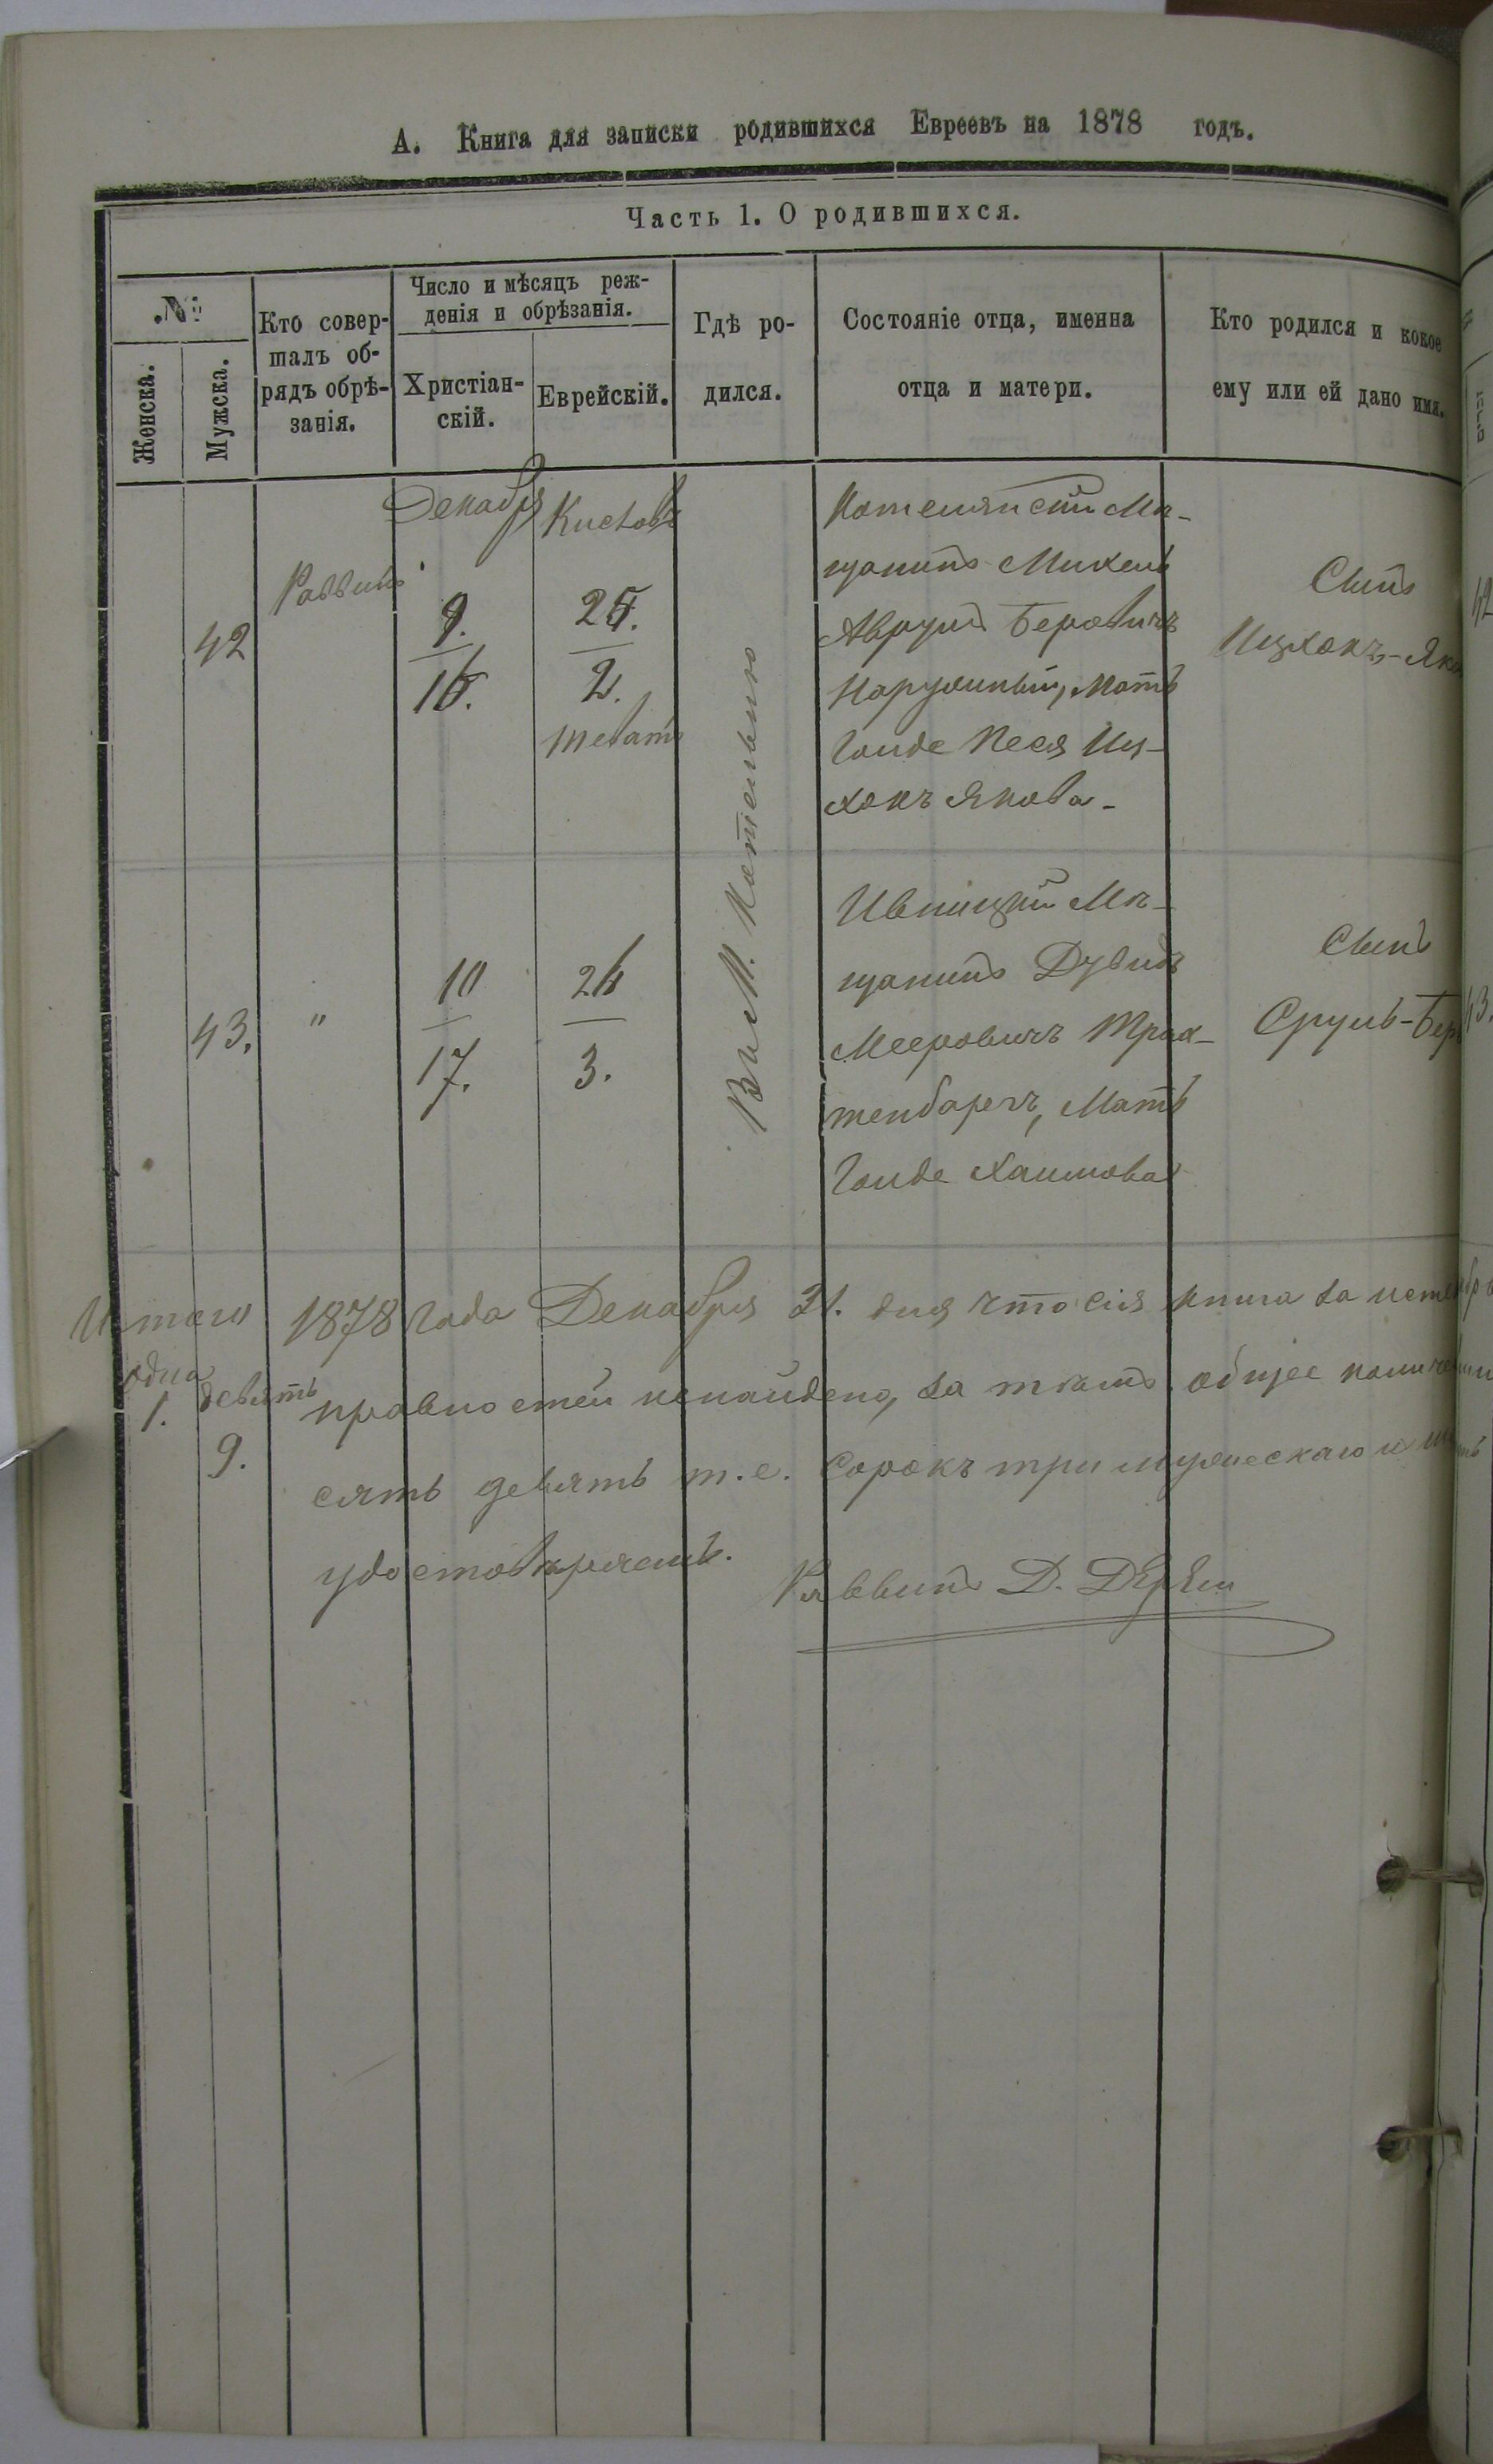 А. Книга для записки родившихся Евреевъ на 1878 годъ.
Часть 1. О родившихся.
№
Женска.
Мужска.
Кто совер-
шалъ об-
рядъ обрѣ-
занія.
Число и мѣсяцъ реж-
денія и обрѣзанія.
Христіан-
скій.
Еврейскій.
Гдѣ ро-
дился.
Состояніе отца, именна
отца и матери.
Кто родился и кокое
ему или ей дано имя.
42
Раввинъ
Декабря
9.
16.
Кислевъ
25.
2.
Теватъ
В. М. Котельню
Котелянскій Мѣ-
щанинъ Михель
Аврумъ Беровичъ
Наружный, Мать
Гольде Песя Иц-
хокъ Якова-
Сынъ
Ицхокъ-Яко
43.
"
10
17.
26
3.
Ивницкій Мѣ-
щанинъ Дувидъ
Мееровичъ Трах-
тенбаргъ, Мать
Гольде Хаимова
Сынъ
Сруль-Бер
42
43.
Итого
одна
1.
девять
9.
1878 года Декабря 31. дня что сія книга за декабрь
правностей ненайдено, за тѣмъ общее количе
сять девять т. е. сорокъ три мужескаго и
удостовѣряемъ.
Раввинъ Д.